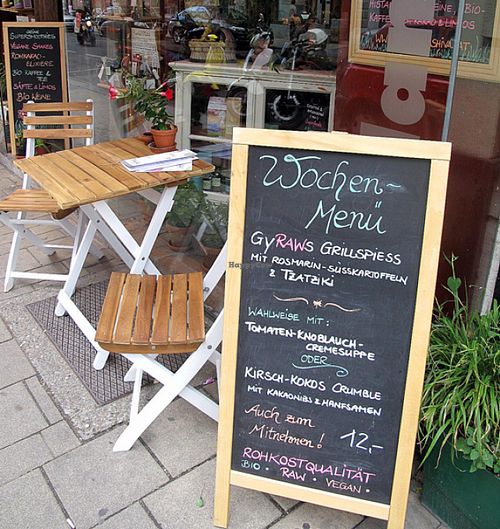 Wochen-
Menü
GyRAWs Grillspiess
mit Rosmarin-Süsskartoffeln
& Tzatziki
Wahlweise mit:
Tomaten-Knoblauch-
Cremesuppe
oder
Kirsch-Kokos Crumble
mit Kakaonibs & Hanfsamen
Auch zum
Mitnehmen! 12,-
Rohkostqualität
Bio • Raw • Vegan •
Supersmoothies
Vegane Shakes
Rohkakao-
Elixiere
Bio Kaffee &
Tee
Säfte & Linos
Bio Weine